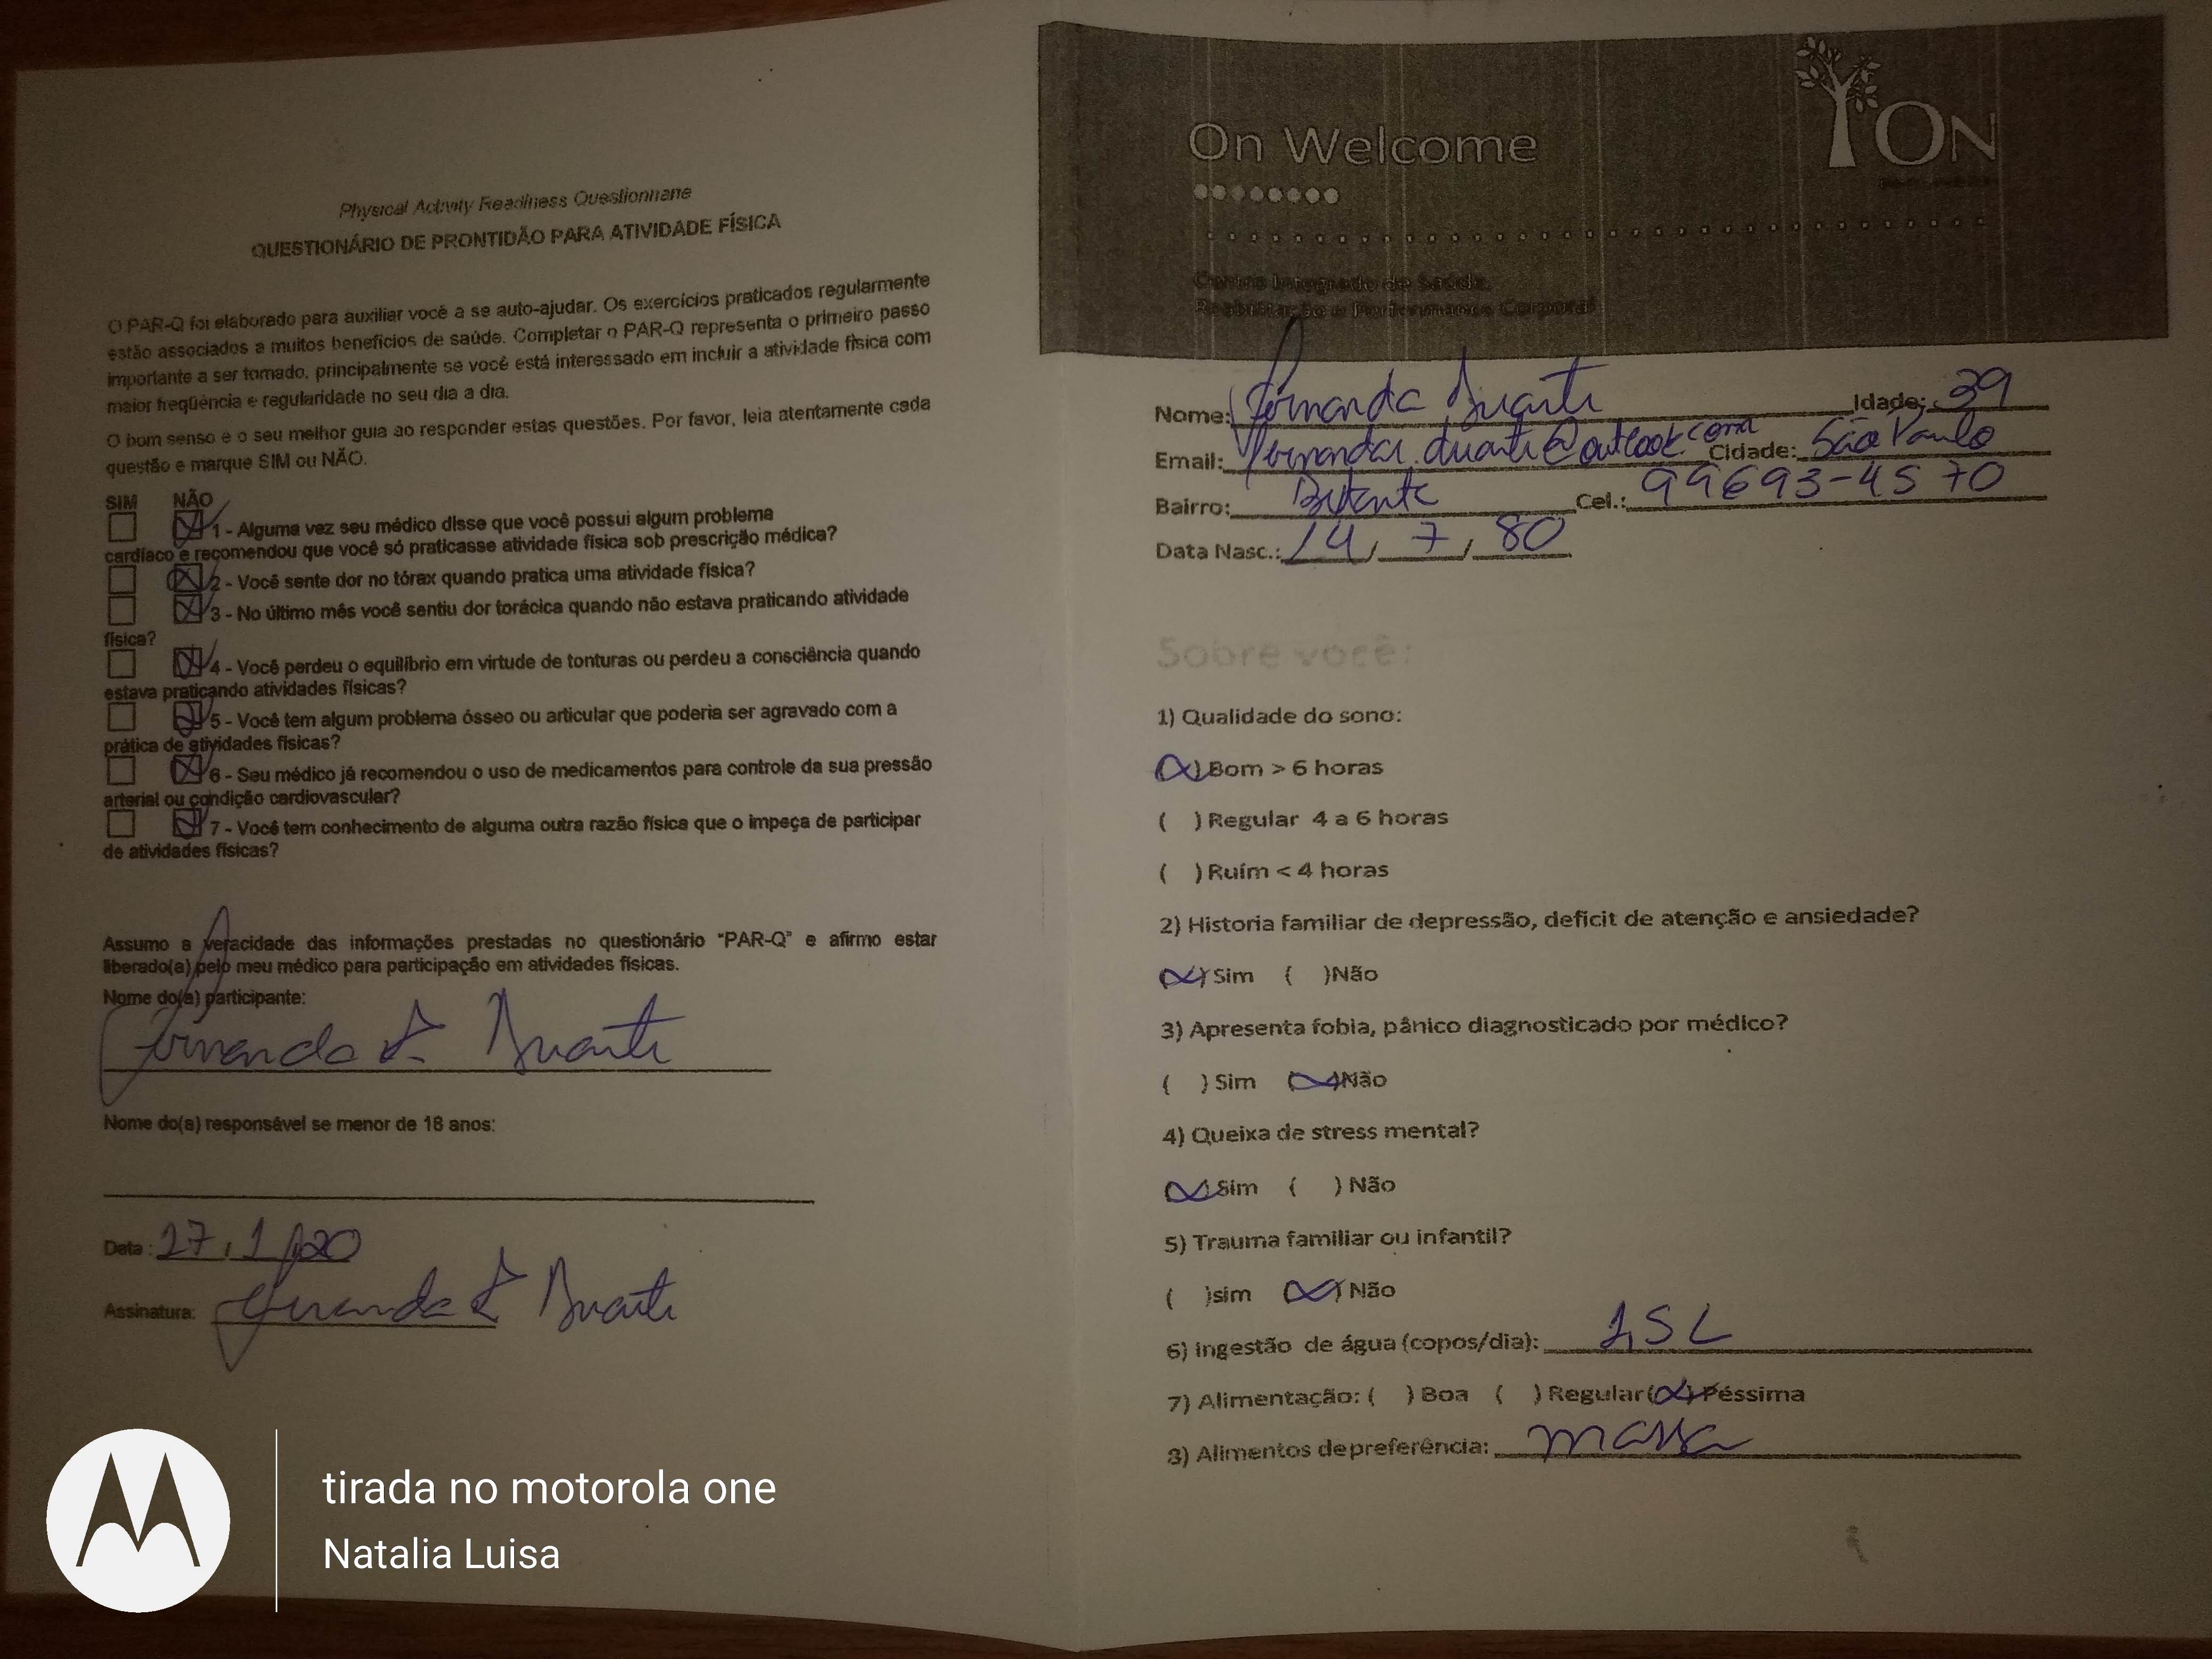 Physical Activity Readiness Questionnaire
QUESTIONÁRIO DE PRONTIDÃO PARA ATIVIDADE FÍSICA
O PAR-Q foi elaborado para auxiliar você a se auto-ajudar. Os exercícios praticados regularmente
estão associados a muitos benefícios de saúde. Completar o PAR-Q representa o primeiro passo
importante a ser tomado, principalmente se você está interessado em incluir a atividade física com
maior freqüência e regularidade no seu dia a dia.
O bom senso é o seu melhor guia ao responder estas questões. Por favor, leia atentamente cada
questão e marque SIM ou NÃO.
SIM NÃO
1 - Alguma vez seu médico disse que você possui algum problema
cardíaco e recomendou que você só praticasse atividade física sob prescrição médica?
2 - Você sente dor no tórax quando pratica uma atividade física?
3 - No último mês você sentiu dor torácica quando não estava praticando atividade
física?
4 - Você perdeu o equilíbrio em virtude de tonturas ou perdeu a consciência quando
estava praticando atividades físicas?
5 - Você tem algum problema ósseo ou articular que poderia ser agravado com a
prática de atividades físicas?
6 - Seu médico já recomendou o uso de medicamentos para controle da sua pressão
arterial ou condição cardiovascular?
7 - Você tem conhecimento de alguma outra razão física que o impeça de participar
de atividades físicas?
Assumo a veracidade das informações prestadas no questionário "PAR-Q" e afirmo estar
liberado(a) pelo meu médico para participação em atividades físicas.
Nome do(a) participante:
Fernanda Duarte
Nome do(a) responsável se menor de 18 anos:
Data: 27, 1 /20
Assinatura: Fernanda Duarte
On Welcome
ON
Centro Integrado de Saúde,
Reabilitação e Performance Corporal
Nome: Fernanda Duarte Idade: 39
Email: fernandar.duarte@outlook.com Cidade: São Paulo
Bairro: Butantã Cel.: 99693-4570
Data Nasc.: 14, 7, 80
Sobre você:
1) Qualidade do sono:
(X) Bom > 6 horas
( ) Regular 4 a 6 horas
( ) Ruím < 4 horas
2) Historia familiar de depressão, deficit de atenção e ansiedade?
(X) Sim ( )Não
3) Apresenta fobia, pânico diagnosticado por médico?
( ) Sim (X)Não
4) Queixa de stress mental?
(X) Sim ( ) Não
5) Trauma familiar ou infantil?
( )sim (X) Não
6) Ingestão de água (copos/dia): 1,5 L
7) Alimentação: ( ) Boa ( ) Regular (X) Péssima
8) Alimentos de preferência: massa
tirada no motorola one
Natalia Luisa